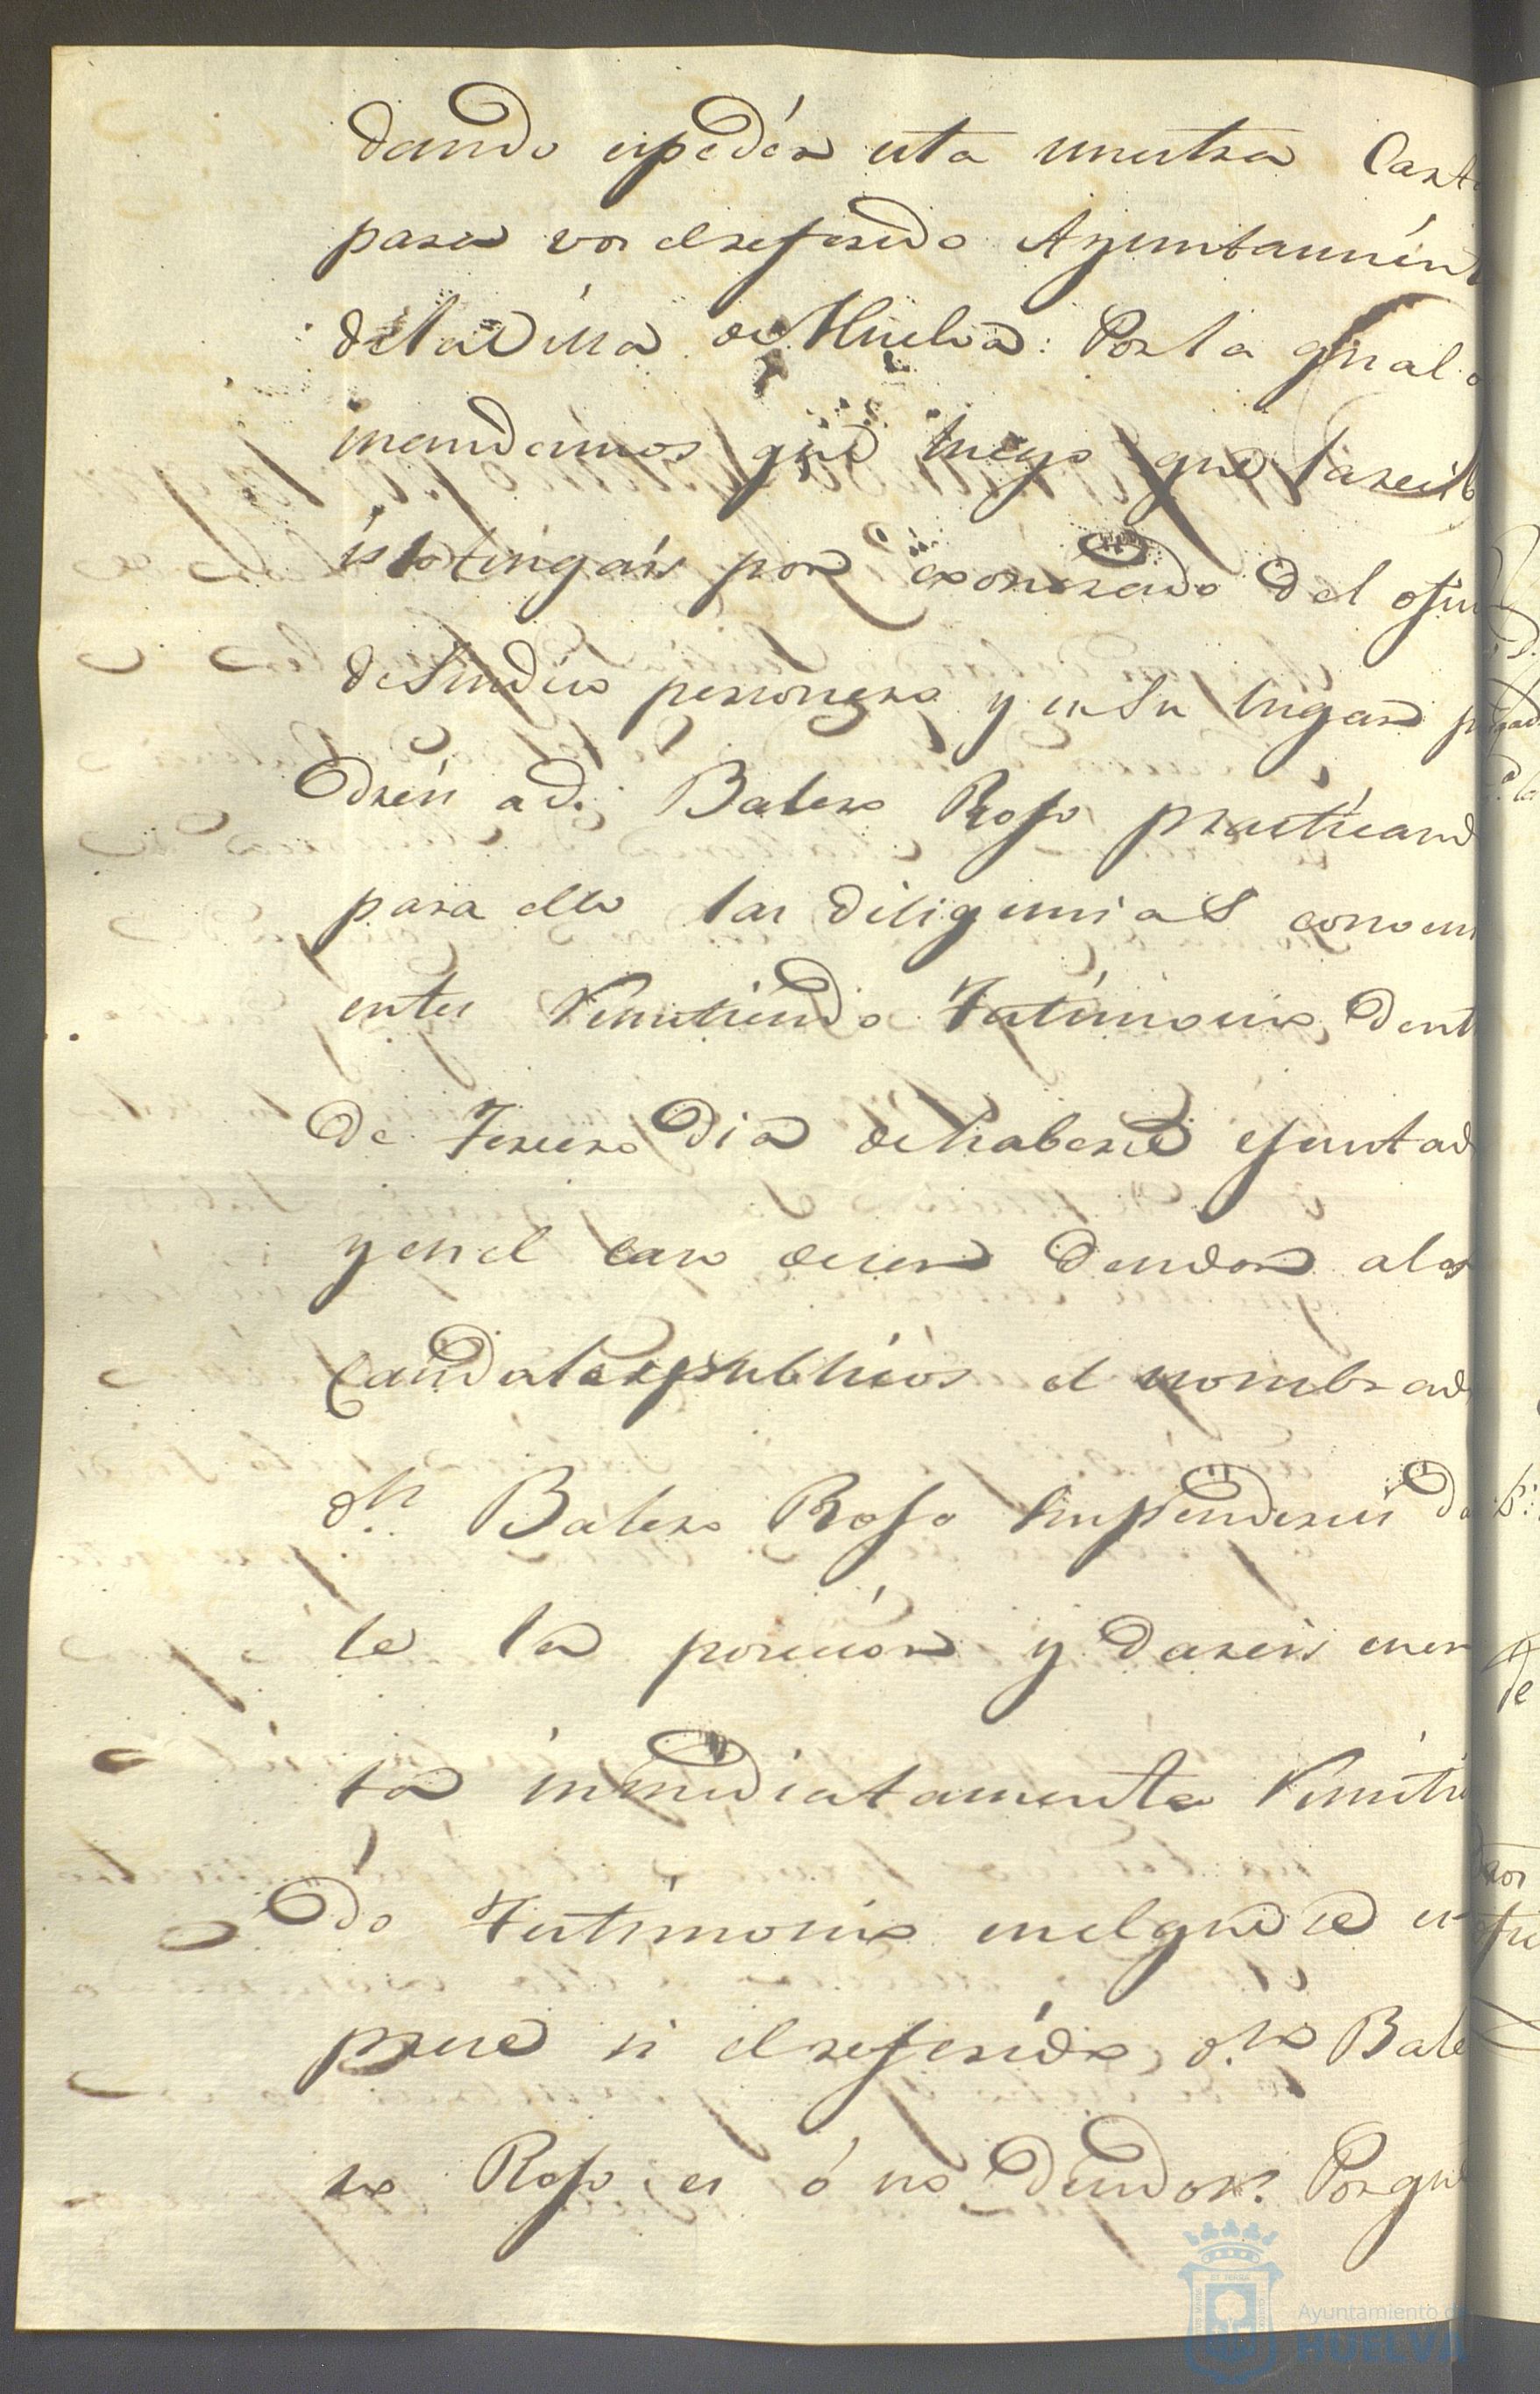 dando expedir esta nuestra Carta
para vos el referido Ayuntamient
de la Villa de Huelva: Por la qual o
mandamos que luego que la recib
is lo tengáis por exonerado del ofici
de Sindico personero y en su lugar p
dréis a dn. Balero Roso practicand
para ello las diligencias conveni
entes Remitiendo Testimonio dent
de Tercero dia de haberse ejecutad
y en el caso de ser deudor a los
Caudales publicos el nombrad
dn. Balero Roso suspendereis da
le la posecion y dareis cuen
ta inmediatamente Remitie
do Testimonio en el que se es
prese si el referido dn. Bale
ro Roso es ó no deudor. Porque
Ayuntamiento de
HUELVA